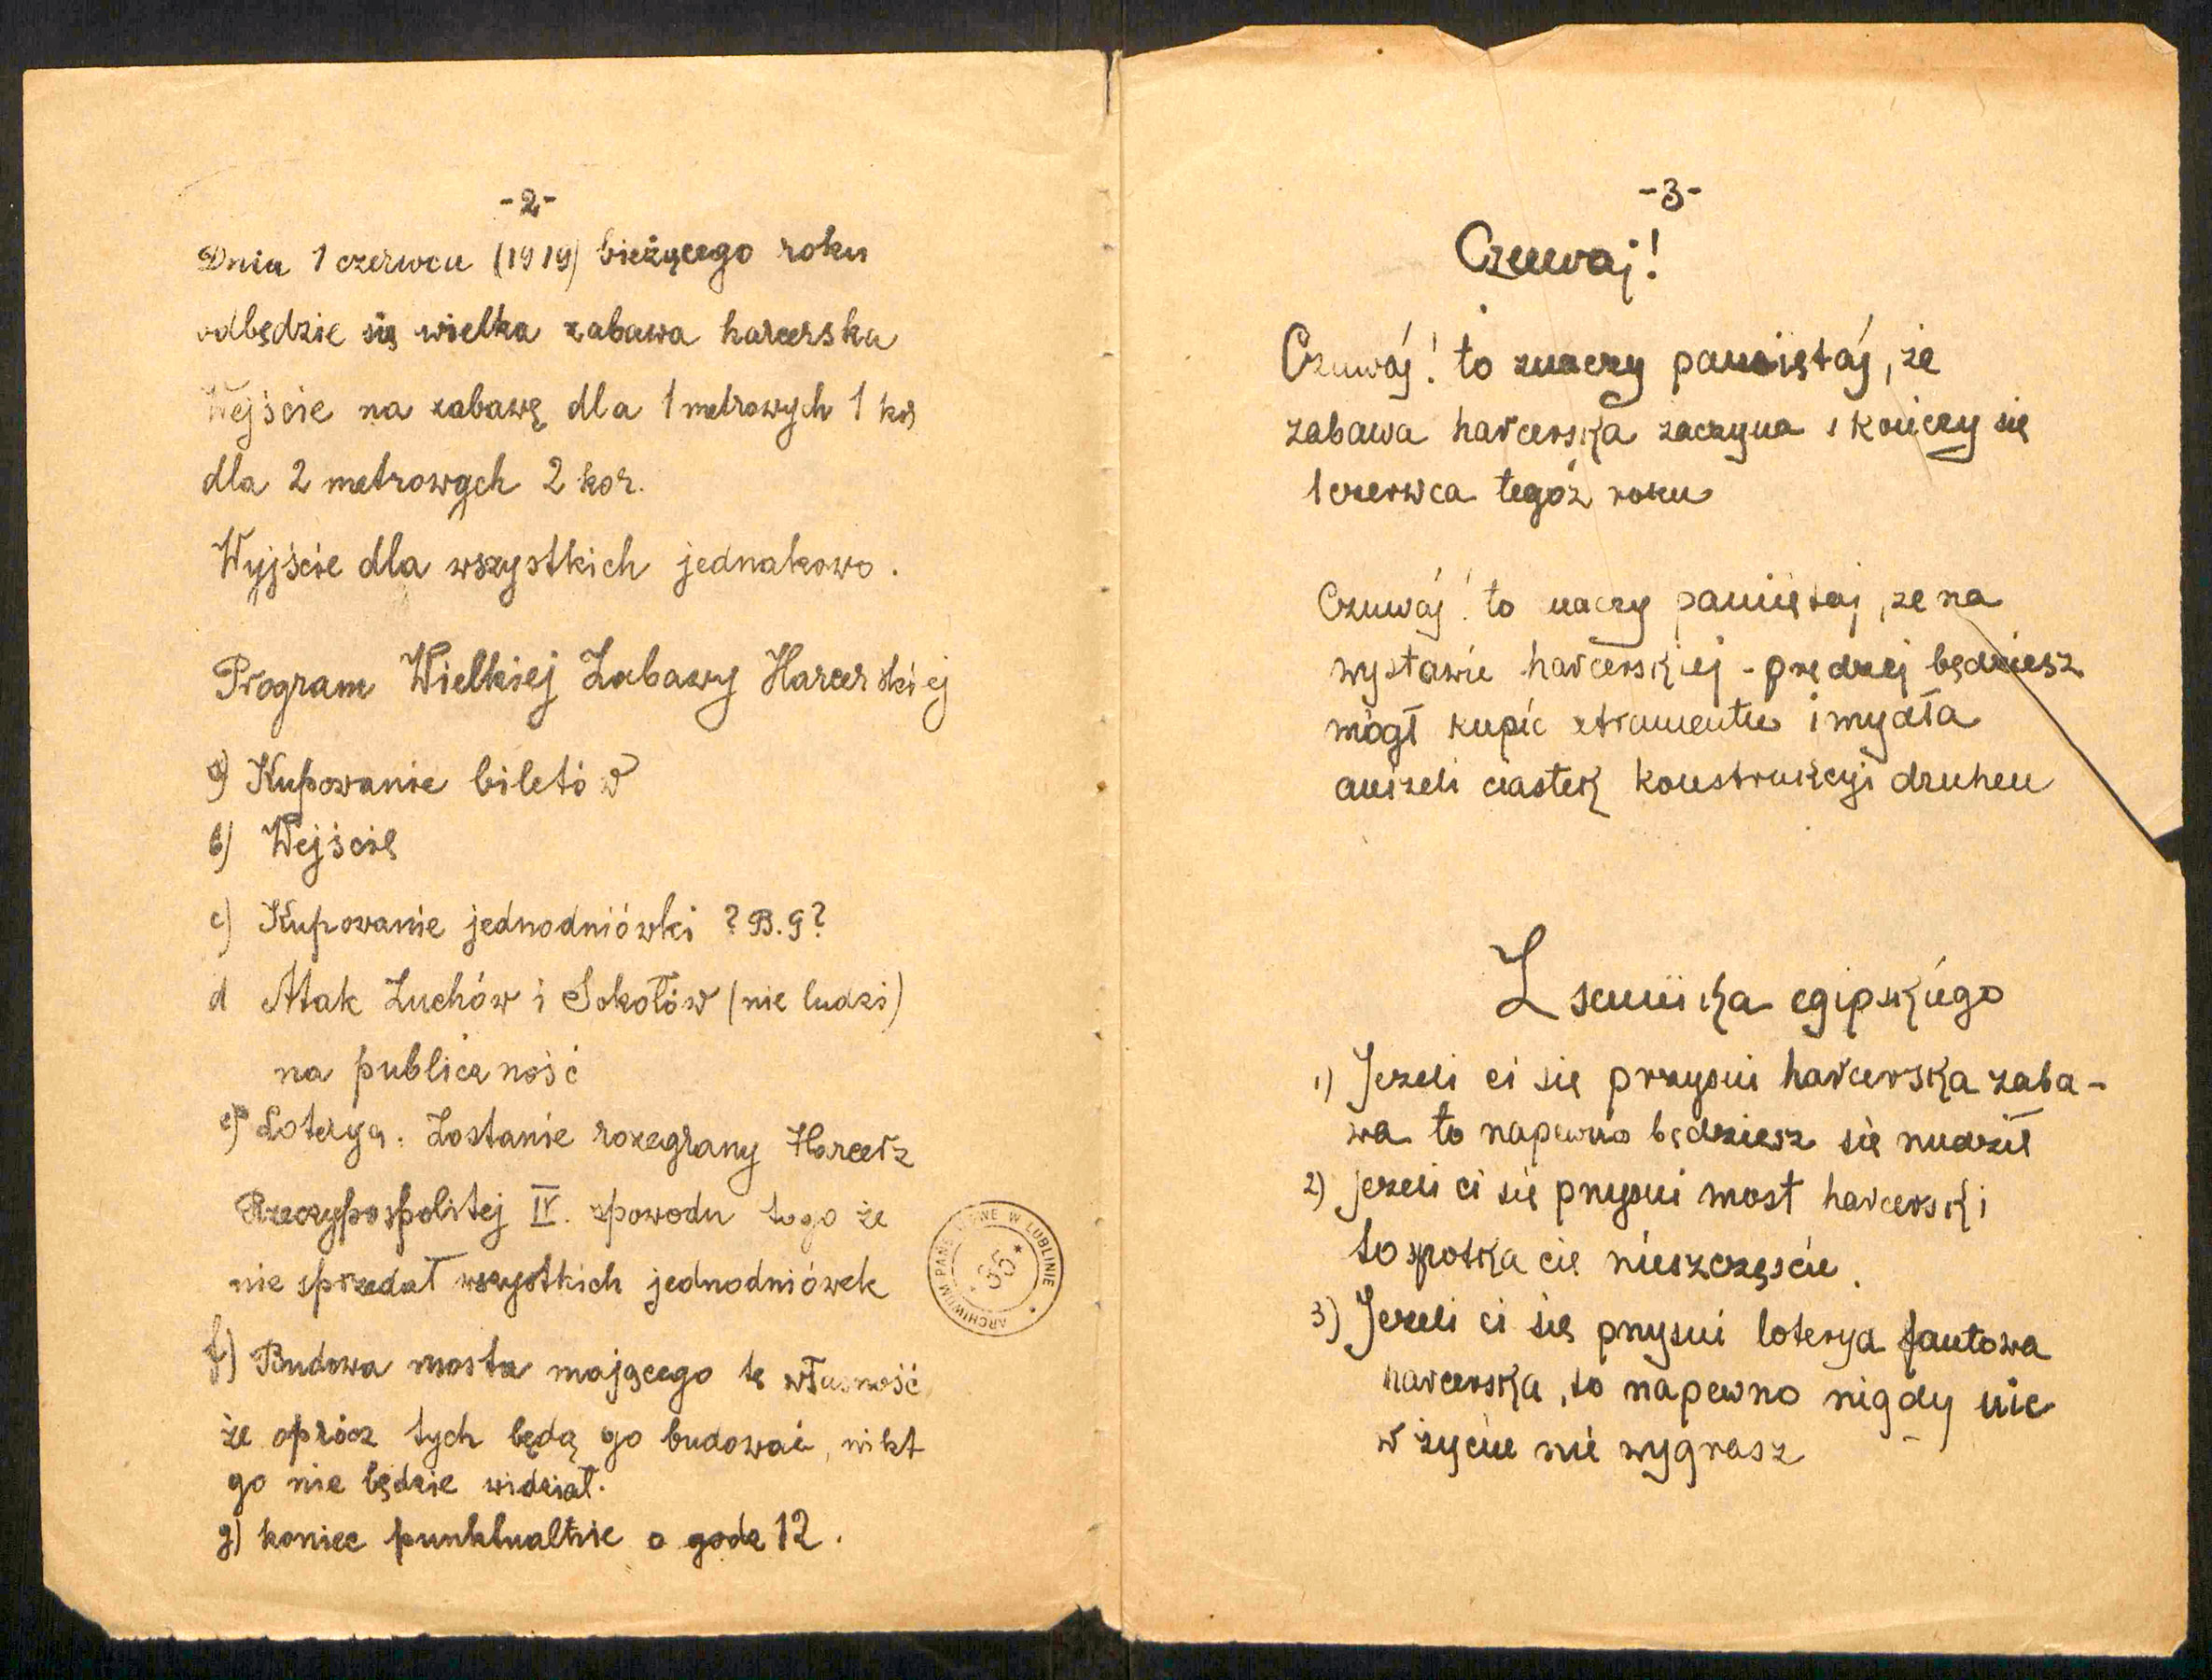 -2-
Dnia 1 czerwca (1919) bieżącego roku
odbędzie się wielka zabawa harcerska
Wejście na zabawę dla 1 metrowych 1 kor
dla 2 metrowych 2 kor.
Wyjście dla wszystkich jednakowo.
Program Wielkiej Zabawy Harcerskiej
a) Kupowanie biletów
b) Wejście
c) Kupowanie jednodniówki ? B. G ?
d Atak Zuchów i Sokołów (nie ludzi)
na publiczność
e) Loterya. Zostanie rozegrany Harcerz
Rzeczypospolitej IV. zpowodu tego że
nie sprzedał wszystkich jednodniówek
f) Budowa mostu mającego tę własność
że oprócz tych będą go budować, nikt
go nie będzie widział.
g) koniec punktualnie o godz 12.
ARCHIWUM PAŃSTWOWE W LUBLINIE
35
-3-
Czuwaj!
Czuwaj! to znaczy pamiętaj, że
zabawa harcerska zaczyna i kończy się
1 czerwca tegóż roku
Czuwaj! to naczy pamiętaj, ze na
wystawie harcerskiej - prędzej będziesz
mógł kupić atramentu i mydła
aniżeli ciastek konstrukcyi druhen
Z sennika egipskiego
1) Jezeli ci się przyśni harcerska zaba-
wa to napewno będziesz się nudził
2) jezeli ci się przyśni most harcerski
to spotka cię nieszczęście.
3) Jezeli ci się przyśni loterya fantowa
harcerska, to napewno nigdy nic
w życiu nie wygrasz